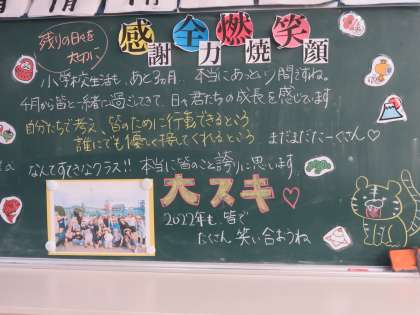 残りの日々を
大切に
感謝 全力 燃焼 笑顔
小学校生活も、あと3ヵ月。本当にあっという間ですね。
4月から皆と一緒に過ごしてきて、日々君たちの成長を感じています。
自分たちで考え、皆のために行動できるという
誰にでも優しく接してくれるという
まだまだたーくさん♡
なんてすてきなクラス!! 本当に皆のこと誇りに思います。
大スキ♡
2022年も、皆で
たくさん笑い合おうね